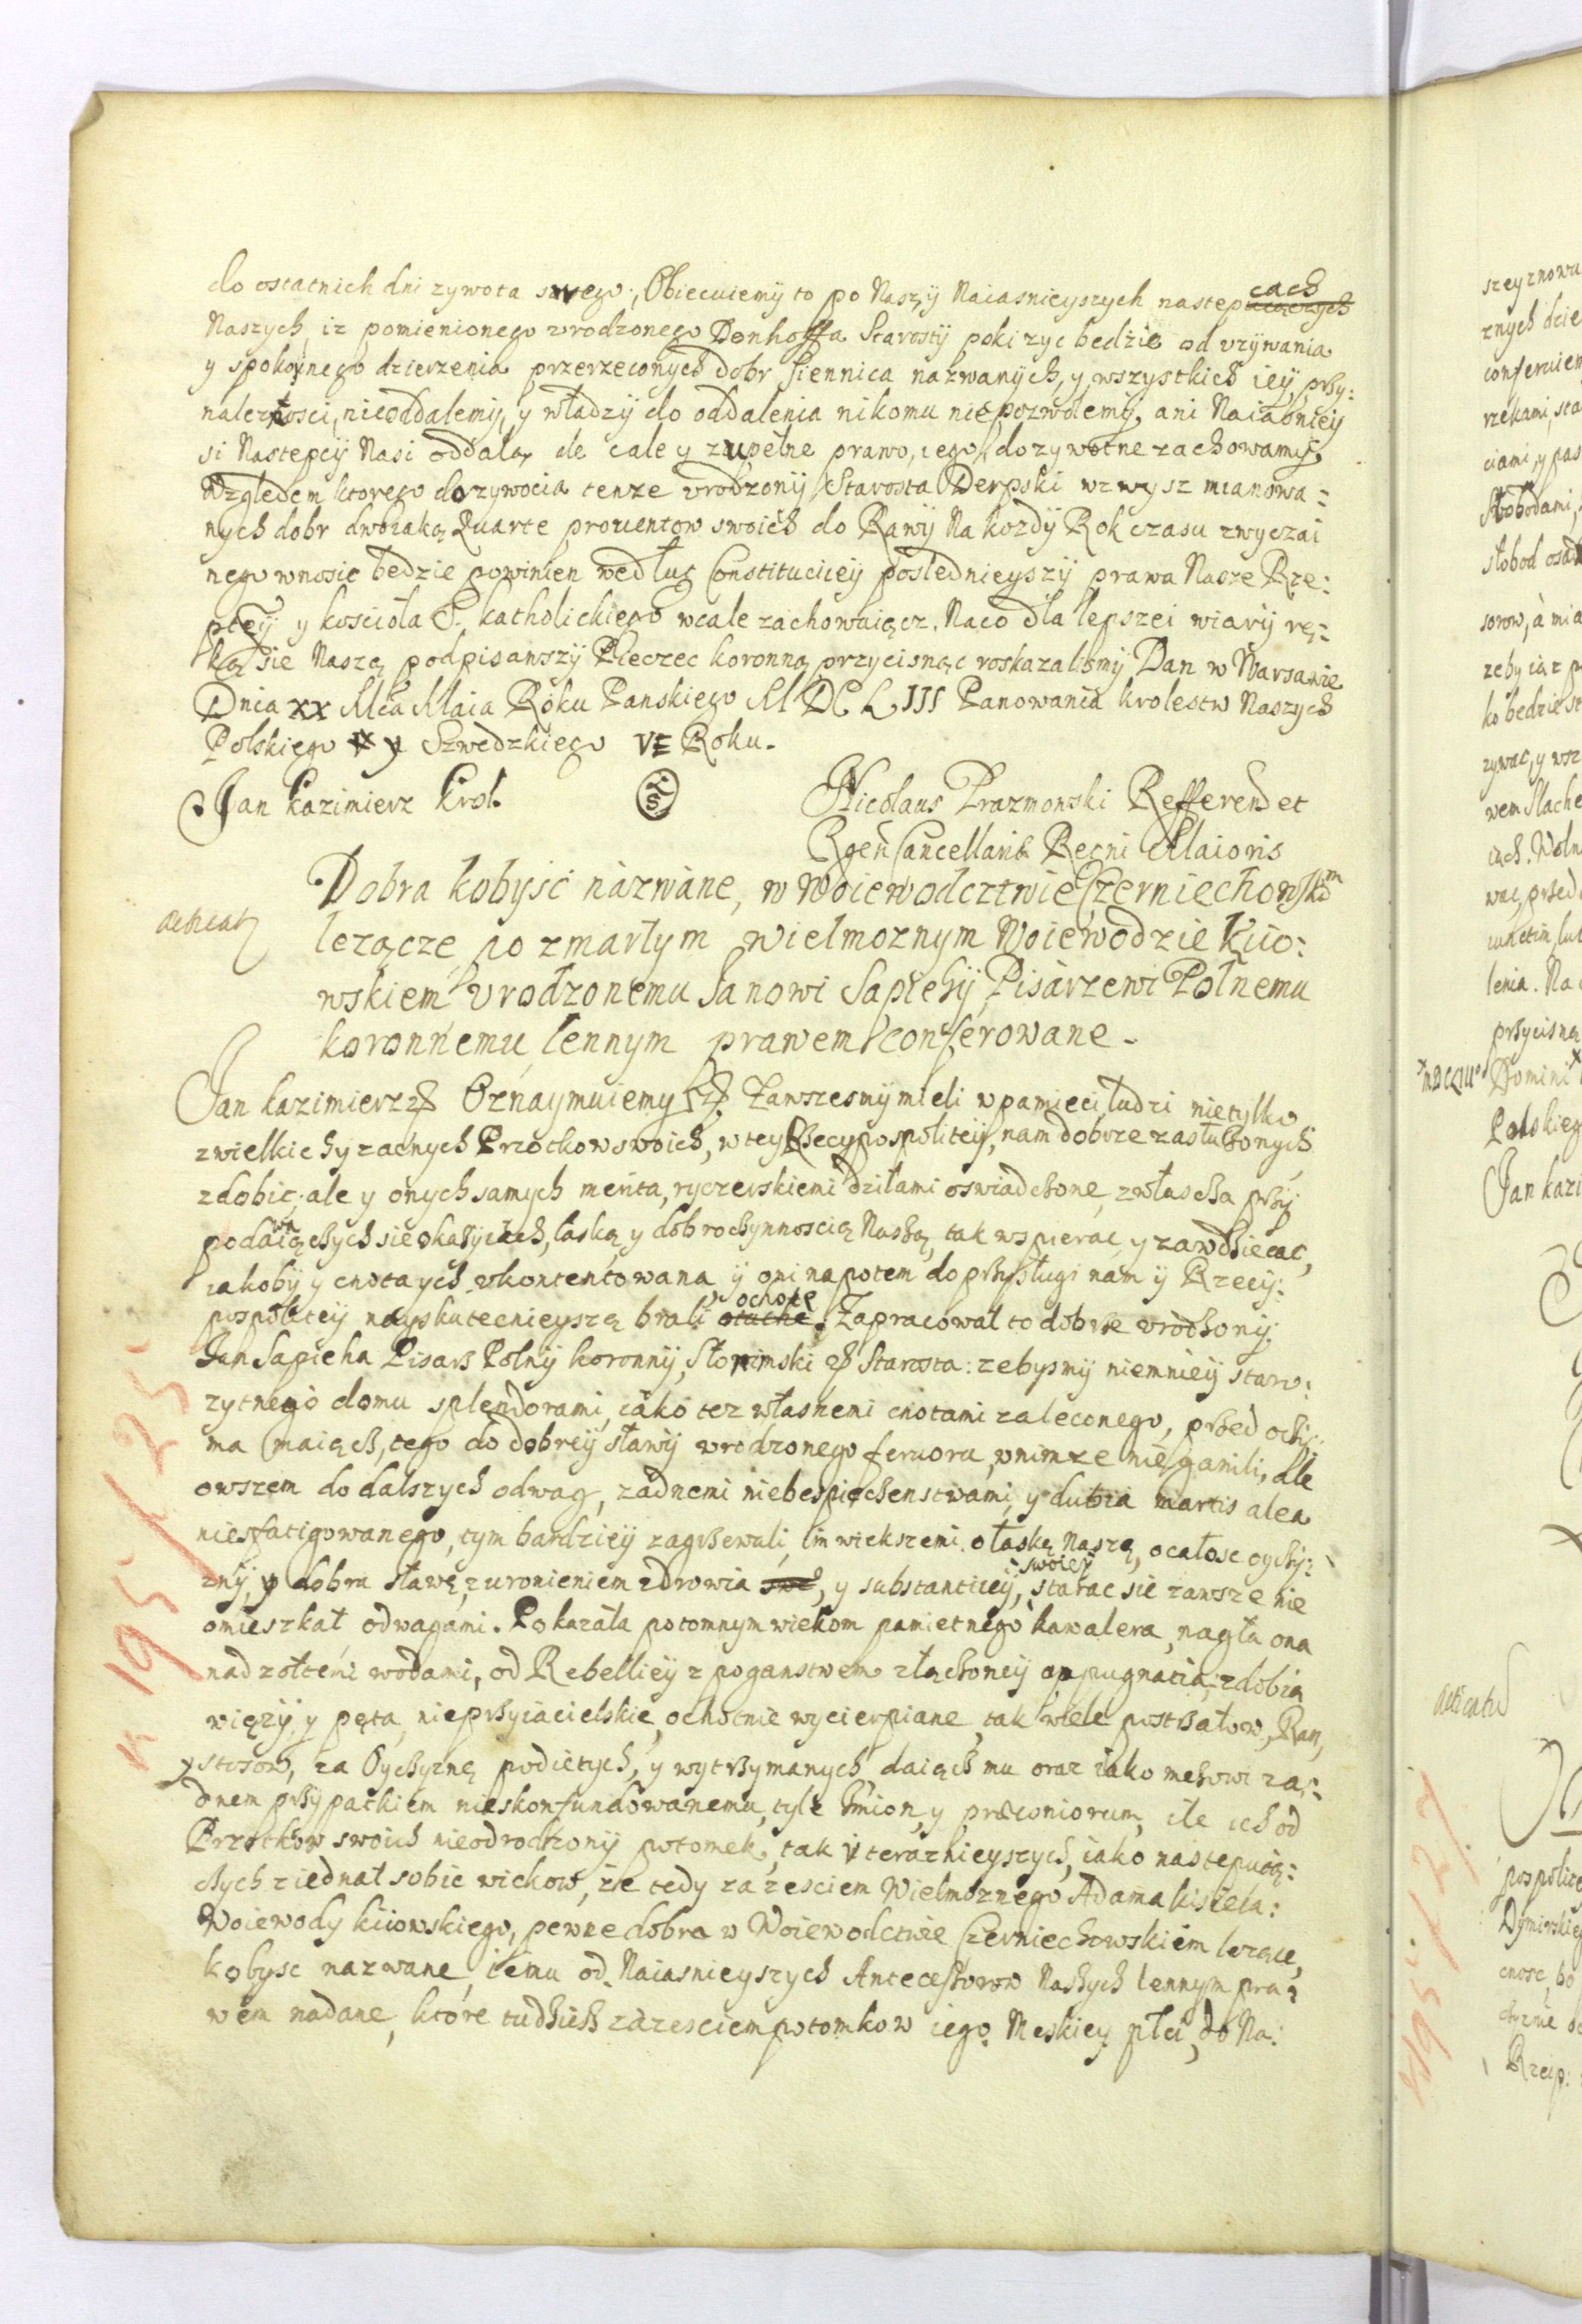 do ostatnich dni zywota swego, Obiecuiemy to po Naszy Naiasnieyszych nastepcach
Naszych, iz pomienionego vrodzonego Donhoffa Starosty poki zyc bedzie od vzywania
y spokoynego dzierzenia przerzeconych dobr Siennica nazwanych, y wszystkich iey przy:
nalertosci, nieoddalemy, y władzy do oddalenia nikomu niepozwolemy, ani Naiasniey
si Nastepcy Nasi oddalą, ale cale y zupełne prawo, iego dozywotne zachowamy,
Względem ktorego dozywocia tenze vrodzony Starosta Derpski wzwysz mianowa:
nych dobr dwoiaką Quarte prouentow swoich do Rawy Na kozdy Rok czasu zwyczai
nego wnosic bedzie powinien według Constituciiey poslednieyszy prawa Nasze Rze:
pltey y kosciola S. katholickiego wcale zachowuiącz. Naco dla lepszei wiary rę:
ką sie Naszą podpisawszy Pieczec koronną przycisnąc roskazalismy Dan w Warsawie
Dnia XX Mca Maia Roku Panskiego MDCLIII Panowania krolestw Naszych
Polskiego y Szwedzkiego VE Roku.
Jan Kazimierz Krol. LS Nicolaus Prazmowski Refferend et
Rgen Cancellariæ Regni Maioris
Dobra kobysc názwáne, w Woiewodcztwie Czerniechowskm
lezącze po zmarłym wielmoznym Woiewodzie Kiio:
wskiem vrodzonemu Janowi Sapiehy Pisarzewi Polnemu
koronnemu lennym prawem conferowane.
Jan kazimierz Oznaymuiemy Zawszesmy mieli w pamieci ludzi nietylko
zwielkich y zacnych Przodkow swoich, w tey Rzecypospolitey, nam dobrze zasłuzonych
zdobic; ale y onych samych merita, ryczerskiemi dziłami oswiadczone, zwłascza przy
podaiących sie okazyiach, laską y dobroczynnoscią Naszą, tak wspierac y zawdzieczac,
iakoby y cnota ych vkontentowana y oni napotem do przysługi nam y Rzecy:
pospolitey nayskutecznieyszą brali ochotę. Zapracował to dobrze vrodzony
Jan Sapieha Pisarz Polny koronny, Słonimski Starosta: zebysmy niemniey staro:
zytnego domu splendorami, iáko tez własnemi cnotami zaleconego, przed oczy:
ma maiącz, tego do dobrey sławy vrodzonego feruoru, wnimze nieganili, ale
owszem do dalszych odwag, zadnemi niebespieczenstwami, y dubia martis alea
niesfatigowanego, tym bardziey zagrzewali, im wiekszemi o łaskę Naszą, ocałosc oyczy:
zny, y dobra sławę, zuronieniem zdrowia, y substanticiey, swoiey starac sie zawsze nie
omieszkał odwagami. Pokazała potomnym wiekom pamietnego kawalera, nagła ona
nad zołtemi wodami, od Rebelliey z poganstwem złączoney oppugnatia, zdobią
więzy y pęta nieprzyiacielskie, ochotnie wycierpiane, tak wiele postrzałow, Ran,
y stosow, za Oyczyznę podietych, y wytrzymanych daiącz mu oraz iako mezowi za:
dnem przypadkiem nieskonfundowanemu, tyle Imion, y præconiorum, ile ich od
Przodkow swoich nieodrodzony potomek, tak v teraznieyszych, iako nastepuią:
czych ziednał sobie wiekow, ze tedy za zesciem Wielmoznego Adama kisiela:
Woiewody kiiowskiego, pewne dobra w Woiewodctwie Czerniechowskiem lezące,
kobysc nazwane iemu od Naiasnieyszych Antecessorow Naszych lennym pra:
wem nadane, które tudziesz zazesciem potomkow iego Meskiey płci, do Na: